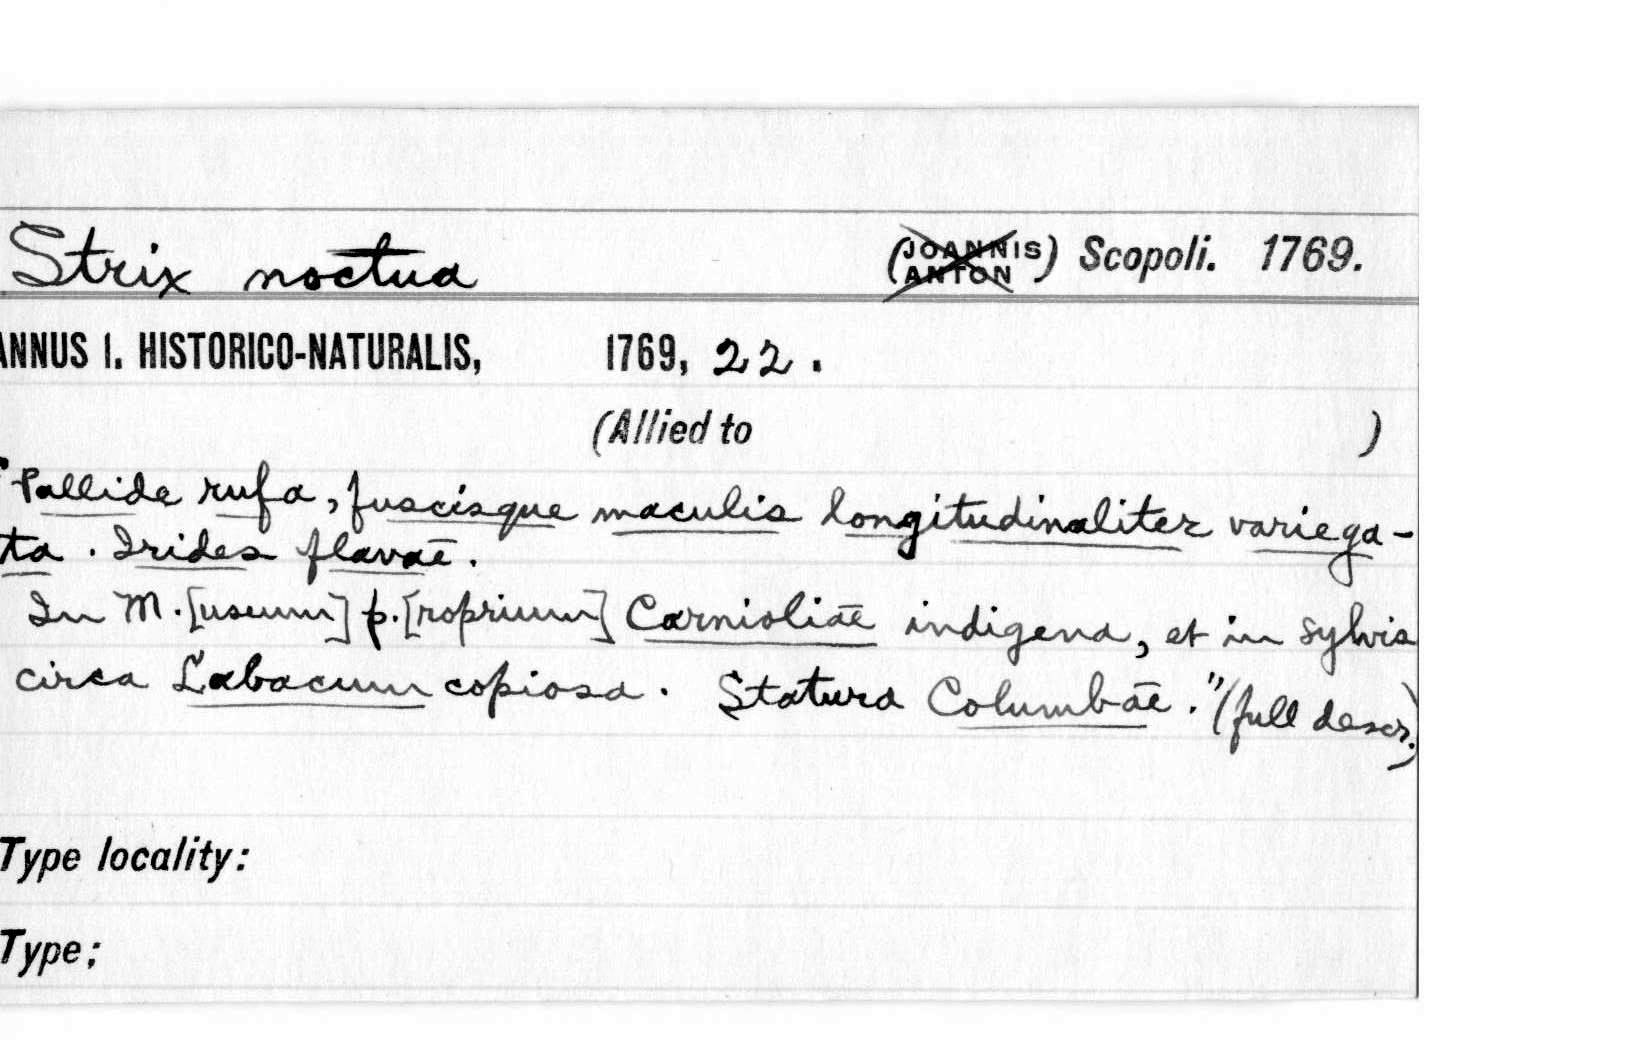 Strix noctua (JOANNIS ANTON) Scopoli. 1769.
ANNUS I. HISTORICO-NATURALIS, 1769, 22.
(Allied to )
"Pallide rufa, fuscisque maculis longitudinaliter variega-
ta. Irides flavae.
In M.[useum] p.[roprium] Carnioliae indigena, et in sylvis
circa Labacum copiosa. Statura Columbae." (full descr.)
Type locality:
Type;